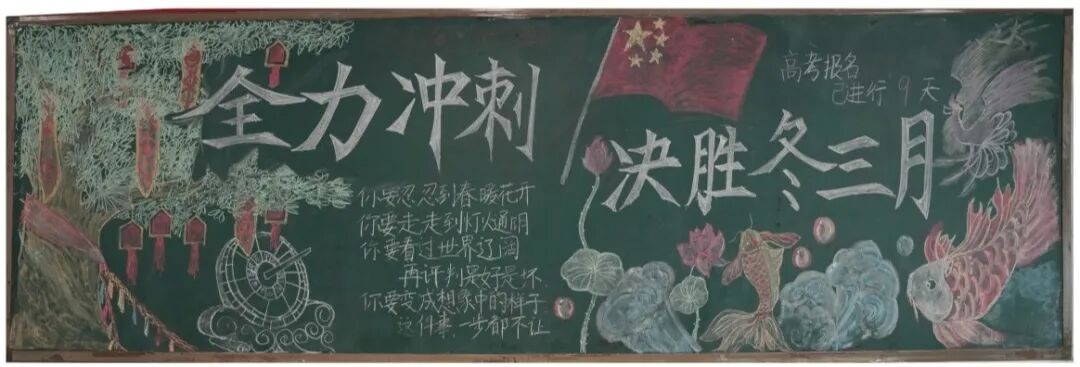 全力冲刺
决胜冬三月
高考报名
已进行 9 天
你要忍,忍到春暖花开
你要走,走到灯火通明
你要看过世界辽阔
再评判是好是坏.
你要变成想象中的样子
这件事,一步都不让